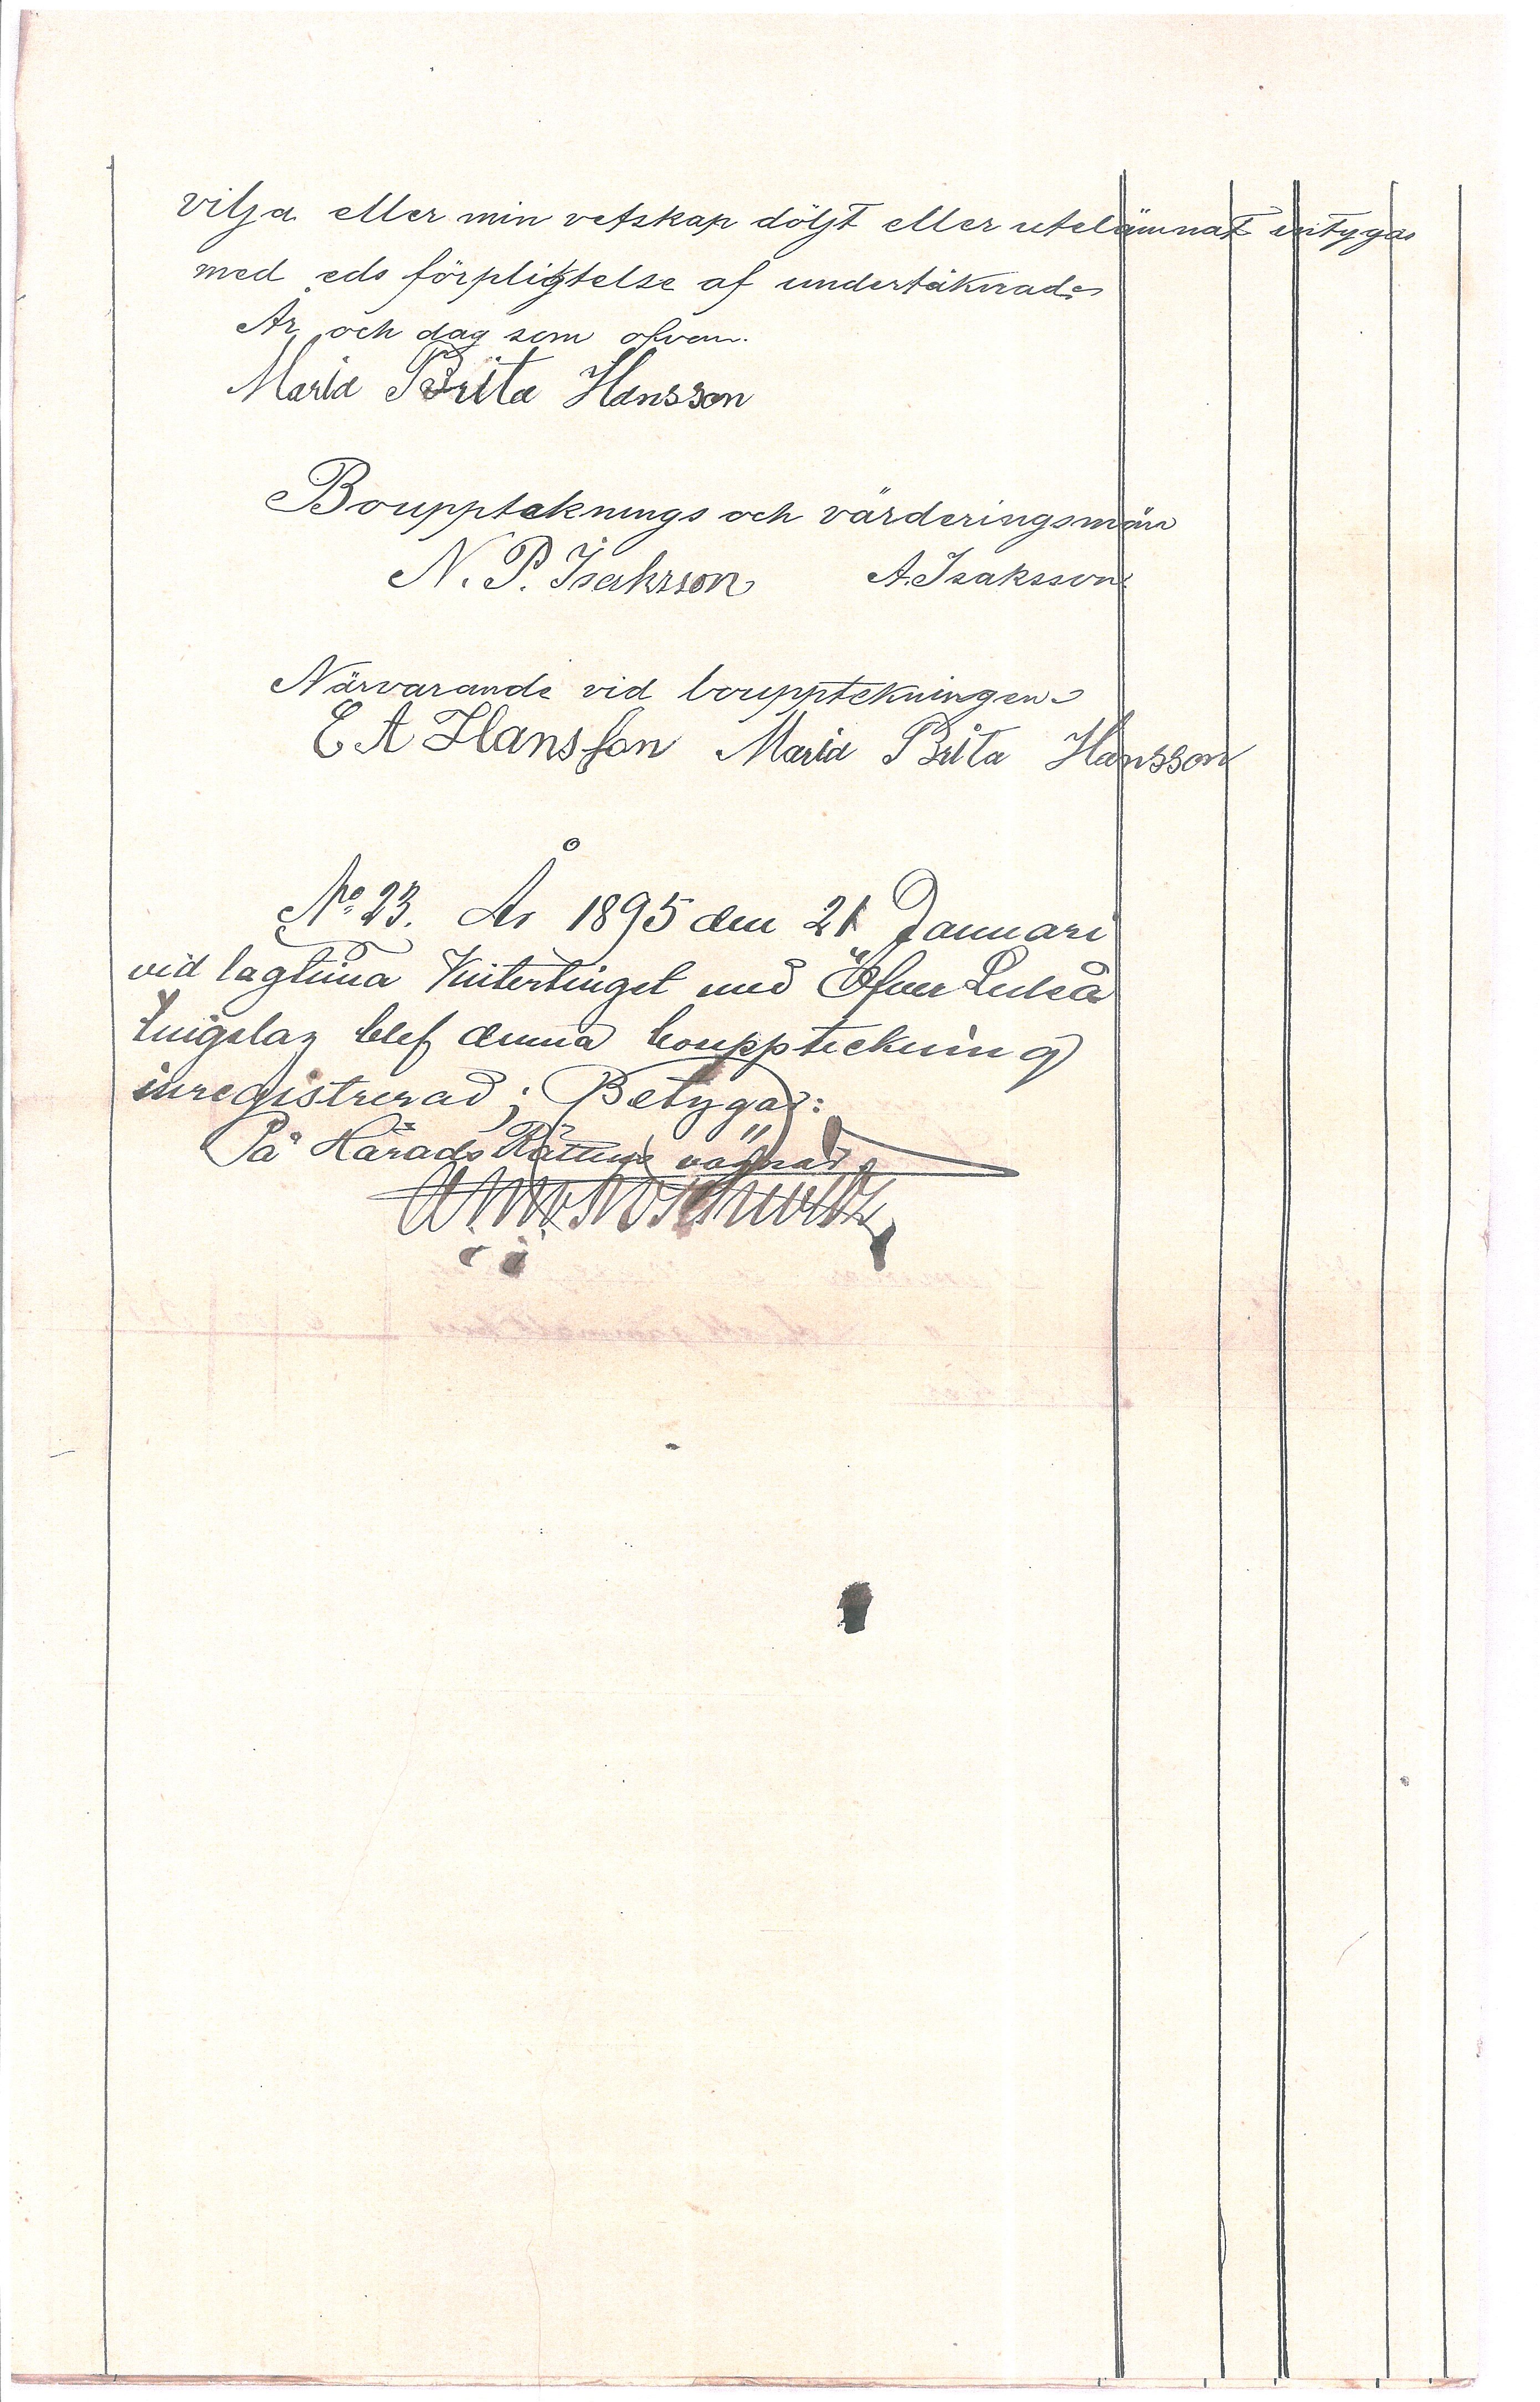 vilja eller min vetskap döljt eller utelämnat intygas
med eds förpligtelse af undertäknade
År och dag som ofvan.
Maria Brita Hansson
Boupptäknings och värderingsmän
N. P. Isaksson A. Isaksson
Närvarande vid bouppteknigen
E A Hansson Maria Brita Hansson
No. 23. År 1895 den 21 Januari
vid lagtima Vintertinget med Öfver Luleå
tingslag blef denna bouppteckning
inregistrerad; Betygar:
På Härads Rättens vägnar